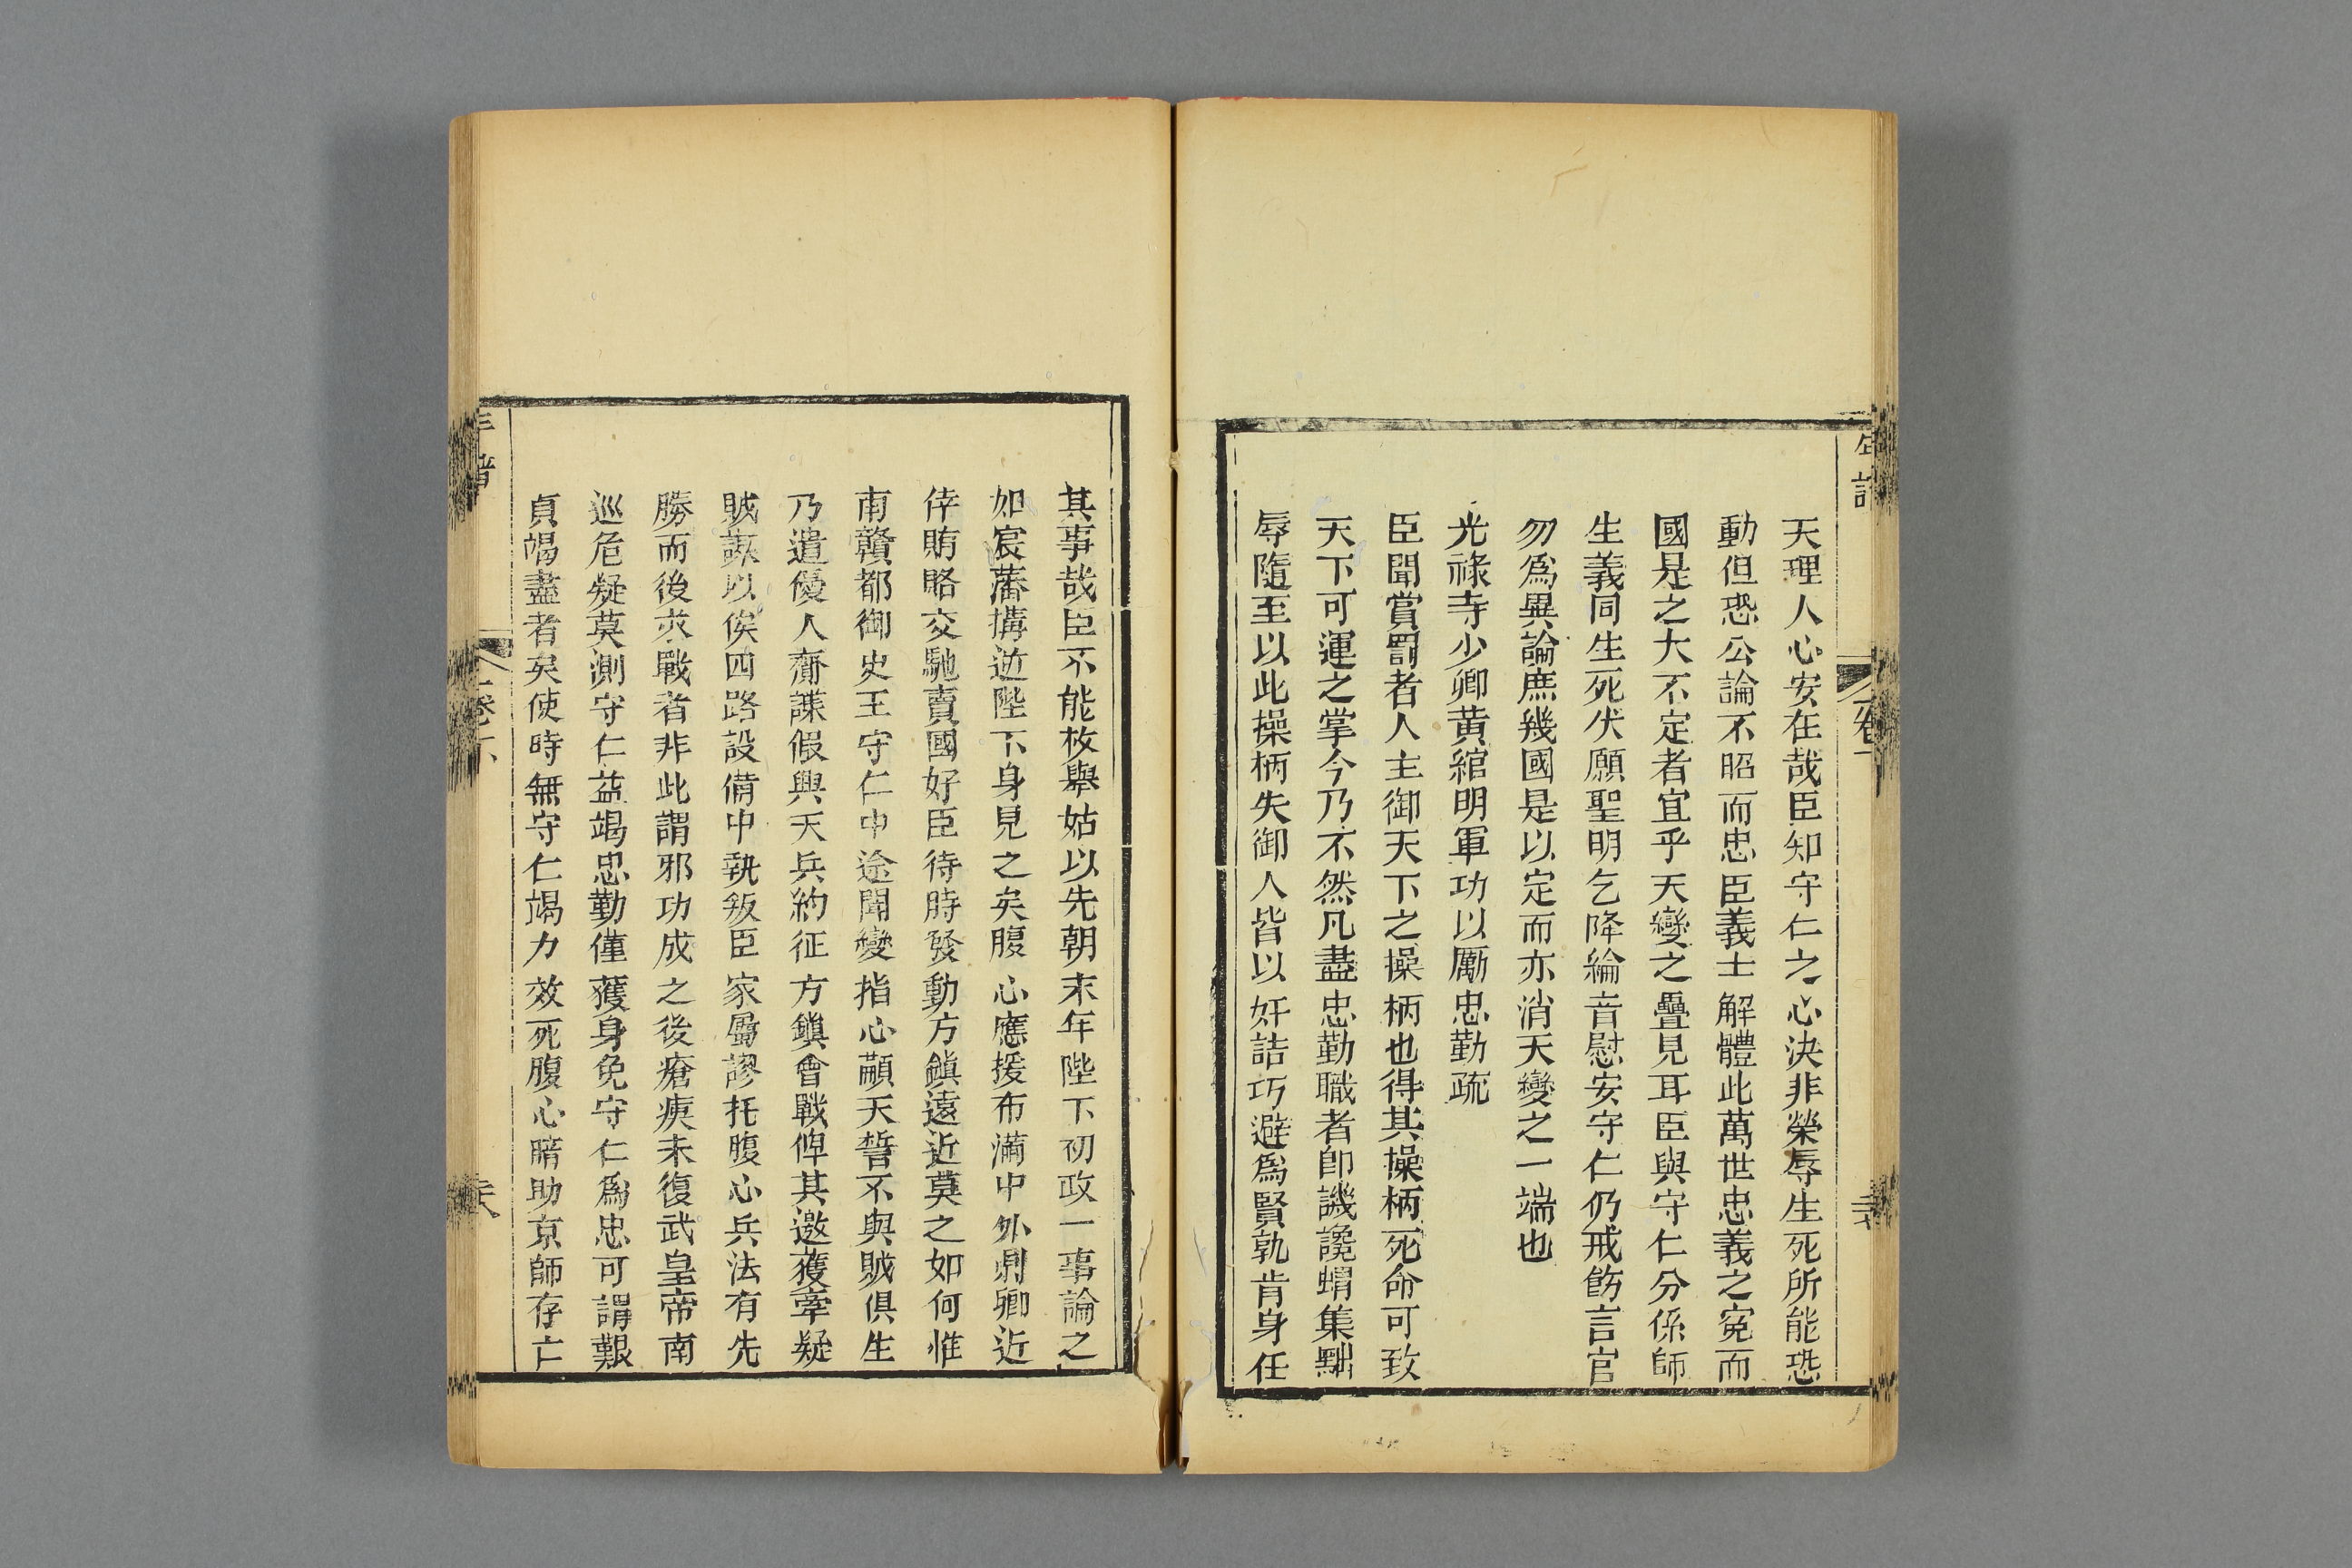 天理人心安在哉臣知守仁之心決非榮辱生死所能恐
動但恐公論不昭而忠臣義士解體此萬世忠義之冤而
國是之大不定者宜乎天變之疊見耳臣與守仁分係師
生義同生死伏願聖明乞降綸音慰安守仁仍戒飭言官
勿爲異論庶幾國是以定而亦消天變之一端也
光祿寺少卿黄綰明軍功以勵忠勤疏
臣聞賞罰者人主御天下之操柄也得其操柄死命可致
天下可運之掌今乃不然凡盡忠勤職者卽譏讒蝟集黜
辱隨至以此操柄失御人皆以奸詰巧避爲賢孰肯身任
其事哉臣不能枚舉姑以先朝末年陛下初政一事論之
如宸藩搆逆陛下身見之矣腹心應援布滿中外鼎卿近
倖賄賂交馳賣國奸臣待時發動方鎮遠近莫之如何惟
南贛都御史王守仁中途聞變指心籲天誓不與賊俱生
乃遣優人齎諜假與天兵約征方鎮會戰俾其邀獲牽疑
賊謀以俟四路設備中執叛臣家屬謬托腹心兵法有先
勝而後求戰者非此謂邪功成之後瘡痍未復武皇帝南
巡危疑莫測守仁益竭忠勤僅獲身免守仁爲忠可謂艱
貞竭盡者矣使時無守仁竭力效死腹心瞎助京師存亡
年譜
卷下